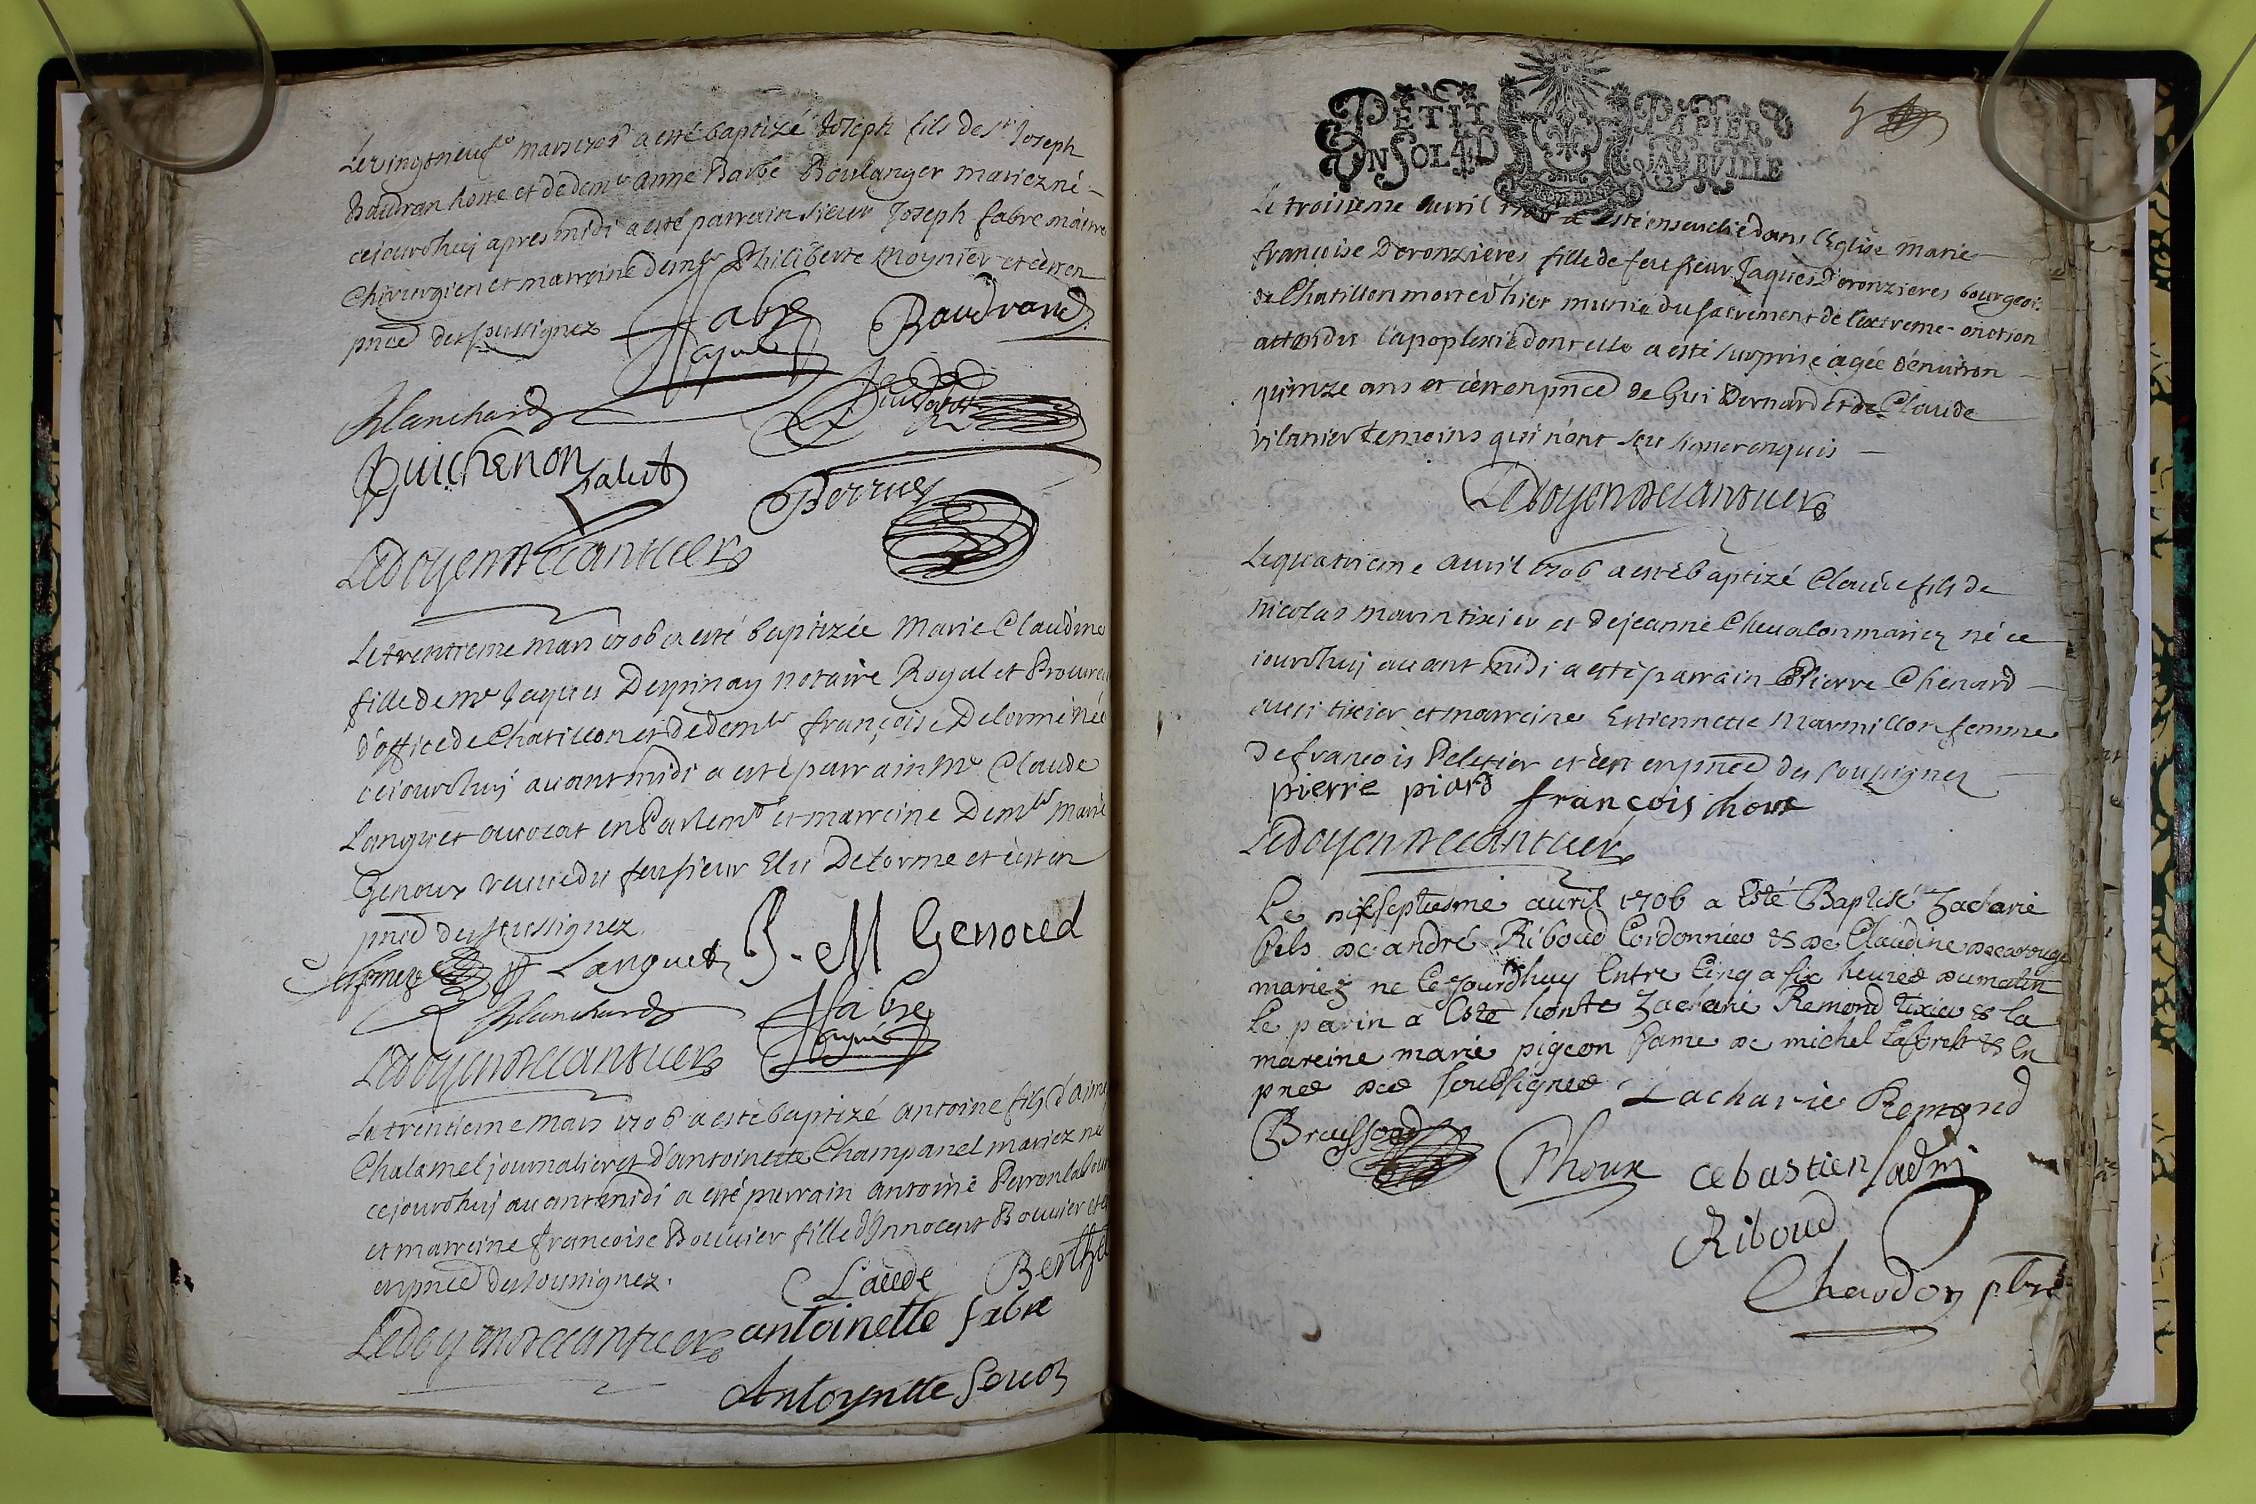 Le vingtneufe mars 1706 a esté baptizé Joseph fils de sr Joseph
Baudran hoste et de demlle anne Barbe Boulanger mariez né
cejourdhuy apres midi a esté parrain sieur Joseph fabre maitre
Chirurgien et marreine demlle Philiberte Moynier et c'est en
pnce des soussignez
fabre
Baudrand
Blanchard
Guichenon
Perruer
Le doyen
Le trentieme mars 1706 a esté baptizée Marie Claudine
fille de Me Jaques Depinay notaire Royal et Procureu
d'office de Chatillon et de demlle françoise Delorme Née
cejourdhuy avant midi a esté parrain Me Claude
Languet avocat en Parlemt et marreine Demlle Marie
Genoux veuve du feu sieur Delorme et c'est en
pnce des soussignez
Languet
J. M Genoud
Blanchard
fabre
Le doyen
Le trentieme mars 1706 a esté baptizé antoine fils d'aimé
Chalamel journalier et d'antoinette Champanel mariez né
cejourdhuy avant midi a esté parrain antoine Perron
et marreine francoise Bouvier fille d'Innocent Bouvier
en pnce des soussignez.
Claude
Le doyen
antoinette fabre
PETIT PAPIER
UN SOL 4 D LA FEVILLE
Le troisieme avril 1706 a esté ensevelie dans l'Eglise Marie
françoise Deronzieres fille de feu sieur Jaques Deronzieres bourgeois
de Chatillon morte d'hier munie du sacrement de l'extreme-onction
attendu l'apoplexie dont elle a esté surprise agée d'environ
quinze ans et c'est en pnce de Gui Bernard et de Claude
vilanier temoins qui n'ont sçu signer enquis
Le doyen
Le quatrieme avril 1706 a esté baptizé Claude fils de
nicolas marin tixier et de jeanne Chevalon mariez né ce
jourdhuy avant midi a esté parrain Pierre Chenard
aussi tixier et marreine Estiennette Marmillon femme
de francois Peletier et c'est en pnce des soussignez
pierre piard
françois
Le doyen
Le septiesme avril 1706 a Esté Baptisé Zacharie
fils de andré Riboud Cordonnier & de Claudine
mariez ne Cejourdhuy Entre Cinq a six heures du matin
Le parin a Esté honte Zacharie Remond Tixier & la
mareine marie pigeon fame de michel Laforest & En
pnce des soubsignes
Zacharie Remond
Broissond
cebastien
Riboud
Chaudon ptre